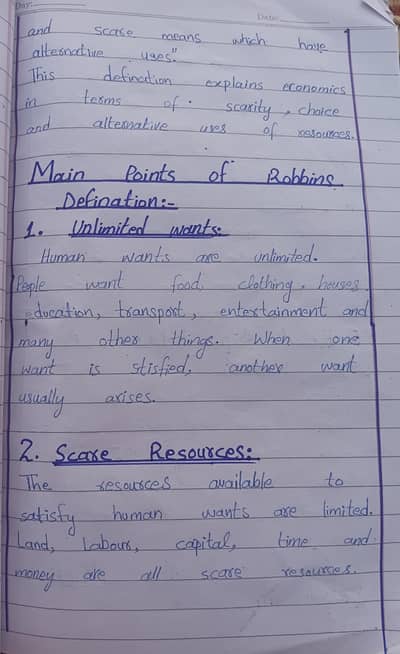 Day:
Date:
and scase means which have
alternative uses".
This defination explains economics
in terms of scarity, choice
and alternative uses of resources.
Main Points of Robbins
Defination:-
1. Unlimited wants:
Human wants are unlimited.
People want food, clothing, houses,
education, transport, entertainment and
many other things. When one
want is stisfied, another want
usually arises.
2. Scare Resources:
The resources available to
satisfy human wants are limited.
Land, Labour, capital, time and
money are all scare resources.